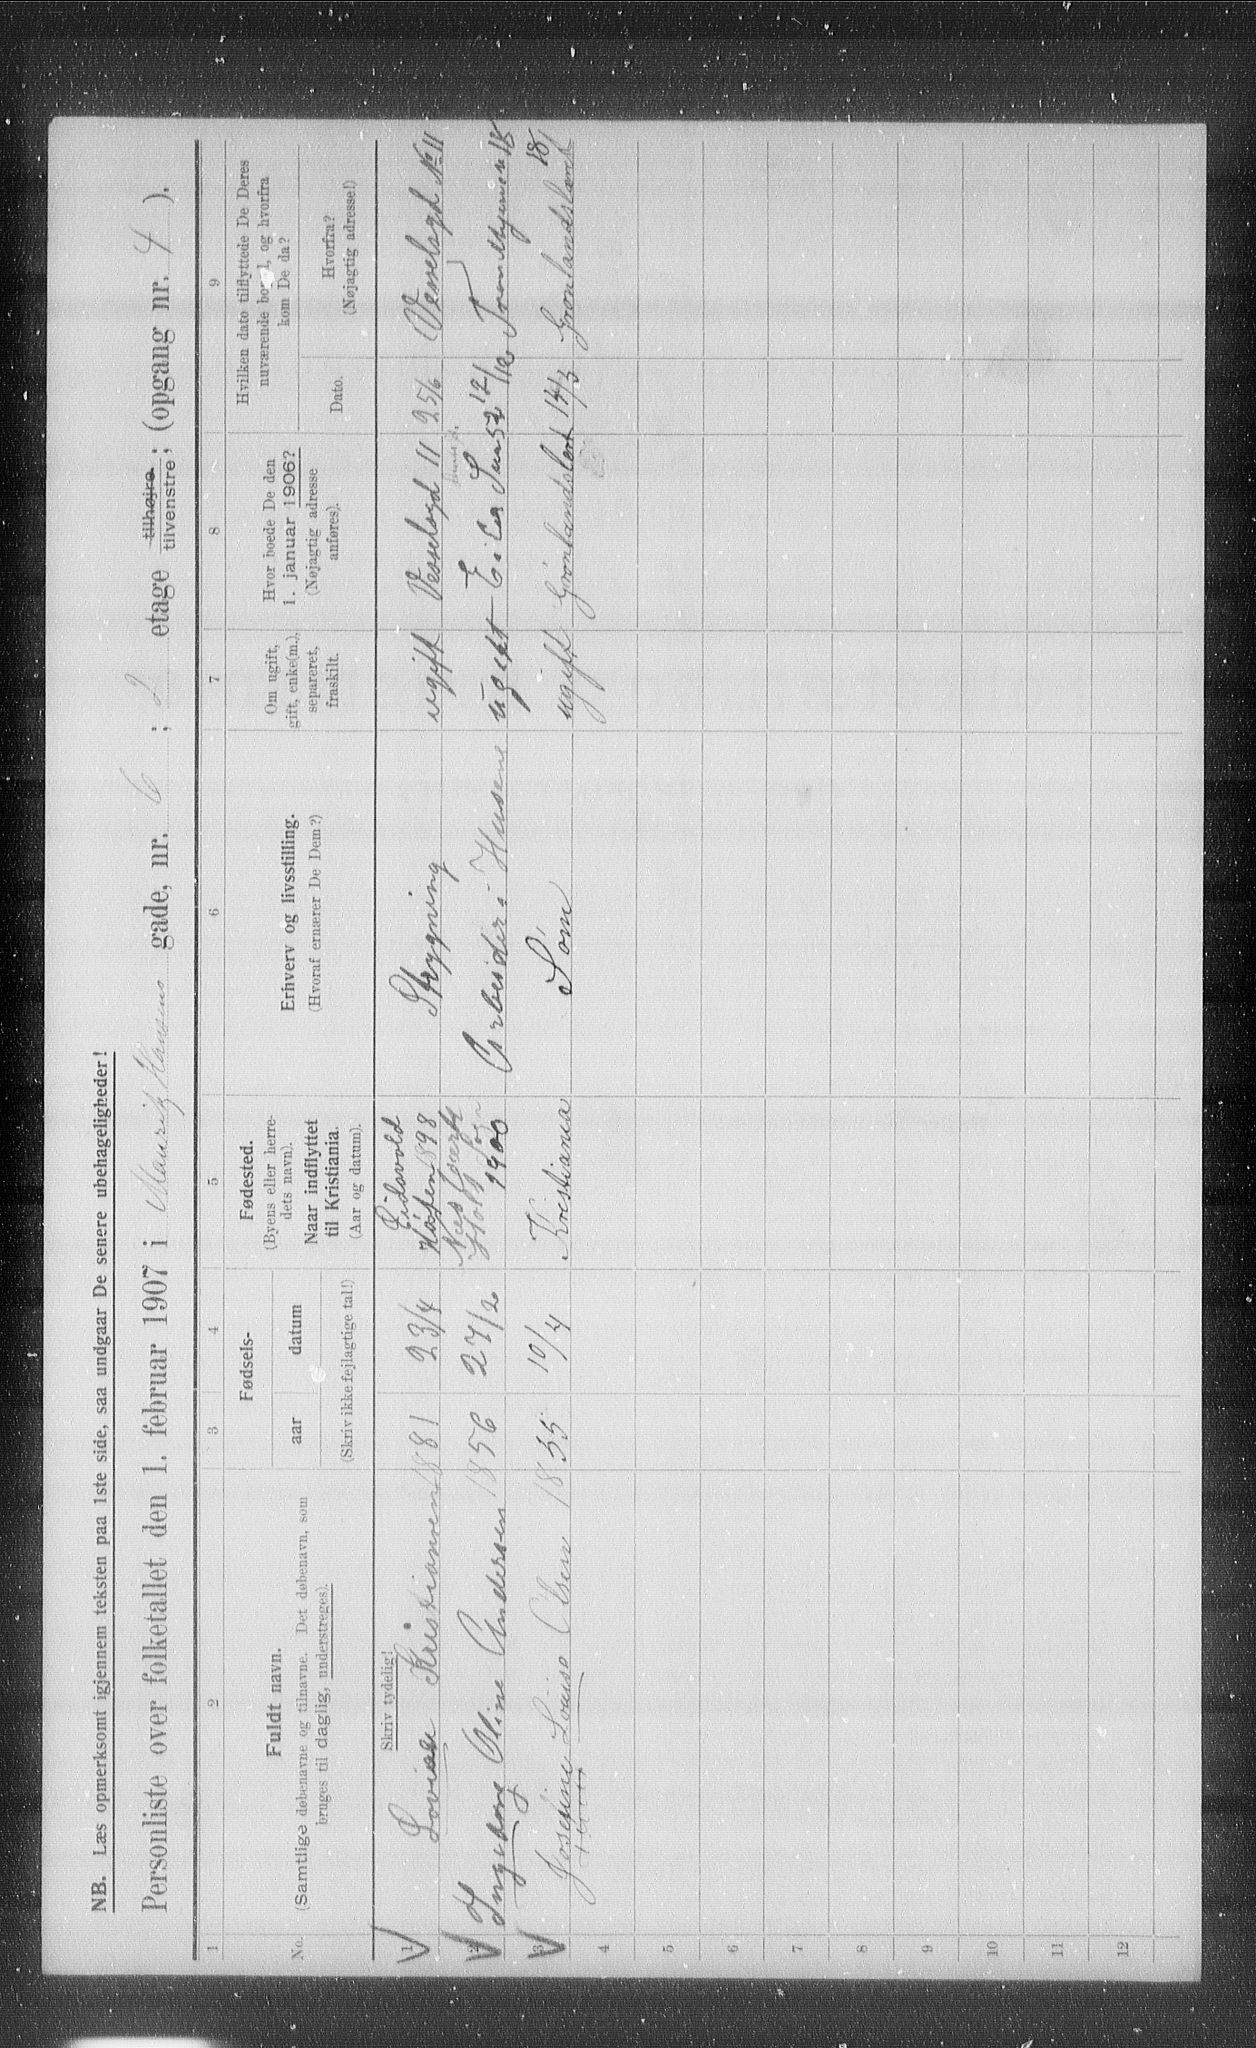 NB. Læs opmerksomt igjennem teksten paa 1ste side, saa undgaar De senere ubehageligheder!
Personliste over folketallet den 1. februar 1907 i Mauritz Hansens gade, nr. 6 ; 2 etage tilhøjre tilvenstre; (opgang nr. 4 ).
1 2 3 4 5 6 7 8 9
No.
Fuldt navn.
(Samtlige døbenavne og tilnavne. Det døbenavn, som
bruges til daglig, understreges).
Fødsels-
aar datum
(Skriv ikke fejlagtige tal!)
Fødested.
(Byens eller herre-
dets navn).
Naar indflyttet
til Kristiania.
(Aar og datum).
Erhverv og livsstilling.
(Hvoraf ernærer De Dem?)
Om ugift,
gift, enke(m.),
separeret,
fraskilt.
Hvor boede De den
1. januar 1906?
(Nøjagtig adresse
anføres).
Hvilken dato tilflyttede De Deres
nuværende bopæl, og hvorfra
kom De da?
Dato.
Hvorfra?
(Nøjagtig adresse!)
Skriv tydelig!
1 Kristiansen 1881 23/4 Eidsvold Høsten 1898 Strygning ugift Vesselsgd 11 25/6 Vesselsgd No 11
2 Ingeborg Oline Andersen 1856 27/2 Holt 1900 Arbeider i Husene ugift 12/10 18
3 Josefine Louise Olsen 1855 10/4 Kristiania Söm ugift Grönlandsleret 14/3 Grönlandsleret 18
4
5
6
7
8
9
10
11
12